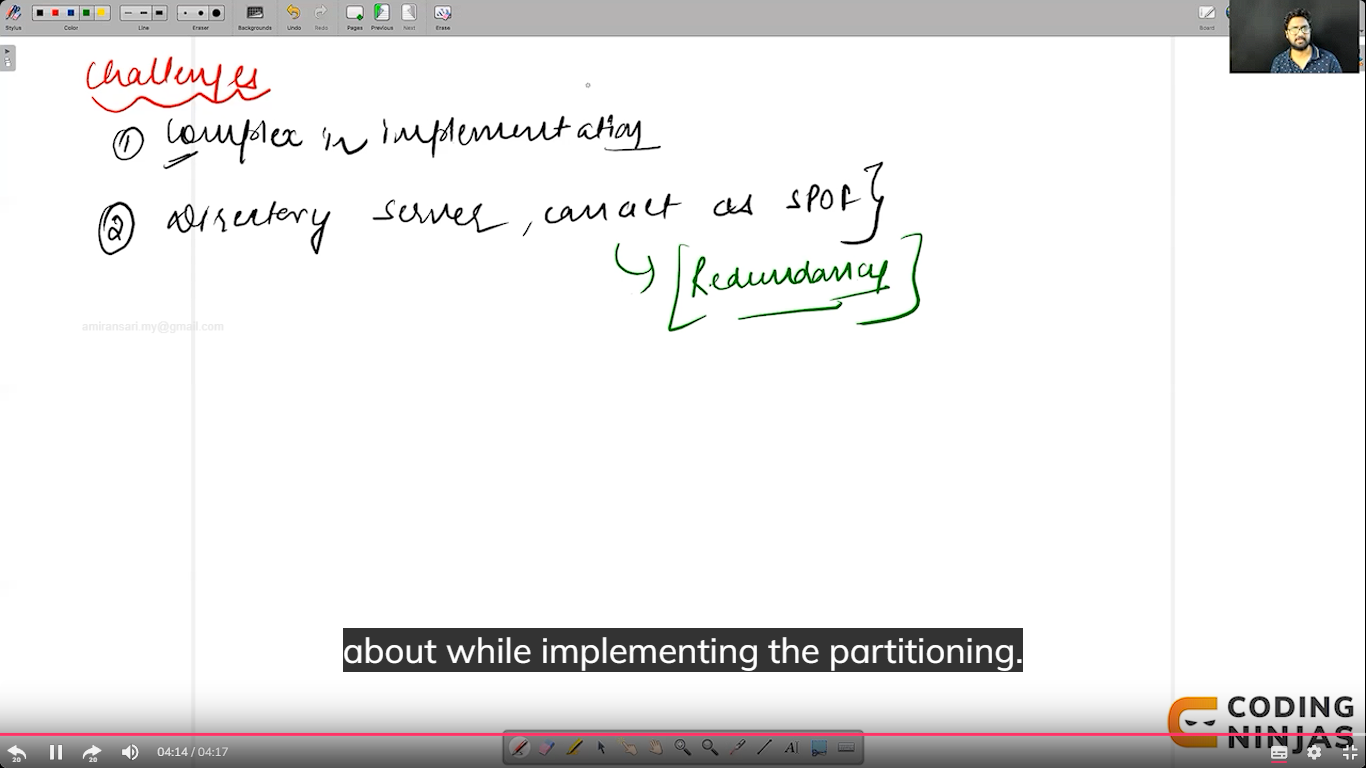 Stylus
Color
Line
Eraser
Backgrounds
Undo
Redo
Pages
Previous
Next
Erase
Board
Challenges
① Complex in implementation
② Directory server, can act as SPOF}
[Redundancy]
amiransari.my@gmail.com
about while implementing the partitioning.
CODING
NINJAS
20
20
04:14 / 04:17